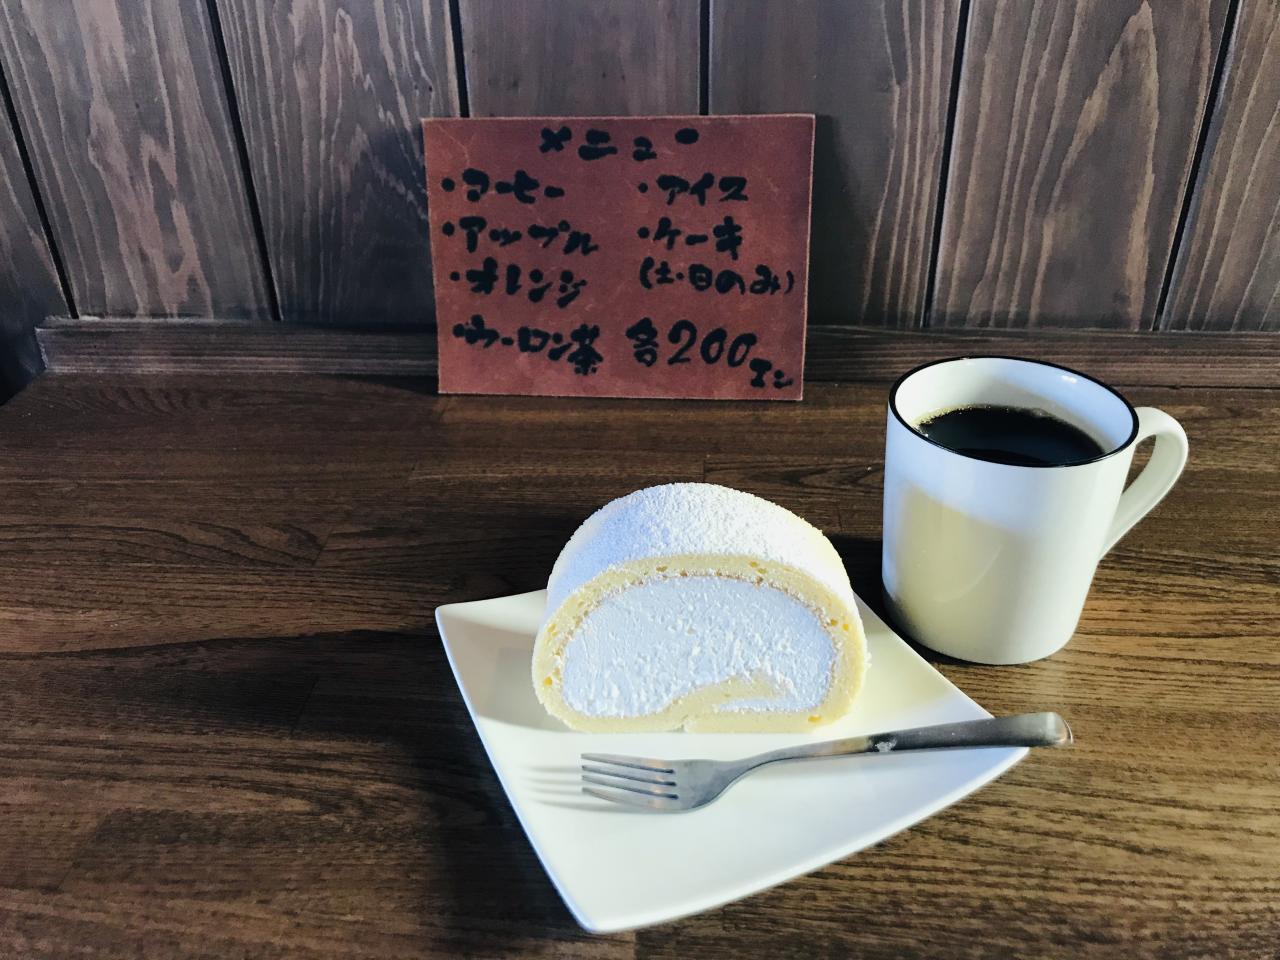 メニュー
・コーヒー
・アップル
・オレンジ
・ウーロン茶
・アイス
・ケーキ
(土・日のみ)
各200エン